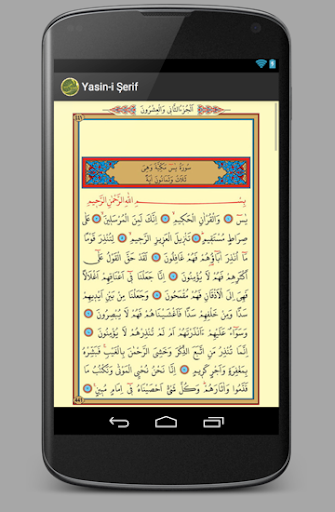 Yasin-i Şerif
اَلْجُزْءُ الثَّانِي وَالْعِشْرُونَ
سُورَةُ يٰسٓ مَكِّيَّةٌ وَهِيَ
ثَلَاثٌ وَثَمَانُونَ اٰيَةً
بِسْمِ اللّٰهِ الرَّحْمٰنِ الرَّحِيمِ
يٰسٓ وَالْقُرْاٰنِ الْحَكِيمِ اِنَّكَ لَمِنَ الْمُرْسَلِينَ عَلٰى
صِرَاطٍ مُسْتَقِيمٍ تَنْزِيلَ الْعَزِيزِ الرَّحِيمِ لِتُنْذِرَ قَوْمًا
مَٓا اُنْذِرَ اٰبَٓاؤُ۬هُمْ فَهُمْ غَافِلُونَ لَقَدْ حَقَّ الْقَوْلُ عَلٰٓى
اَكْثَرِهِمْ فَهُمْ لَا يُؤْمِنُونَ اِنَّا جَعَلْنَا فِٓي اَعْنَاقِهِمْ اَغْلَالًا
فَهِيَ اِلَى الْاَذْقَانِ فَهُمْ مُقْمَحُونَ وَجَعَلْنَا مِنْ بَيْنِ اَيْدِيهِمْ
سَدًّا وَمِنْ خَلْفِهِمْ سَدًّا فَاَغْشَيْنَاهُمْ فَهُمْ لَا يُبْصِرُونَ
وَسَوَٓاءٌ عَلَيْهِمْ ءَاَنْذَرْتَهُمْ اَمْ لَمْ تُنْذِرْهُمْ لَا يُؤْمِنُونَ
اِنَّمَا تُنْذِرُ مَنِ اتَّبَعَ الذِّكْرَ وَخَشِيَ الرَّحْمٰنَ بِالْغَيْبِ فَبَشِّرْهُ
بِمَغْفِرَةٍ وَاَجْرٍ كَرِيمٍ اِنَّا نَحْنُ نُحْيِ الْمَوْتٰى وَنَكْتُبُ مَا
قَدَّمُوا وَاٰثَارَهُمْ وَكُلَّ شَيْءٍ اَحْصَيْنَاهُ فِٓي اِمَامٍ مُبِينٍ